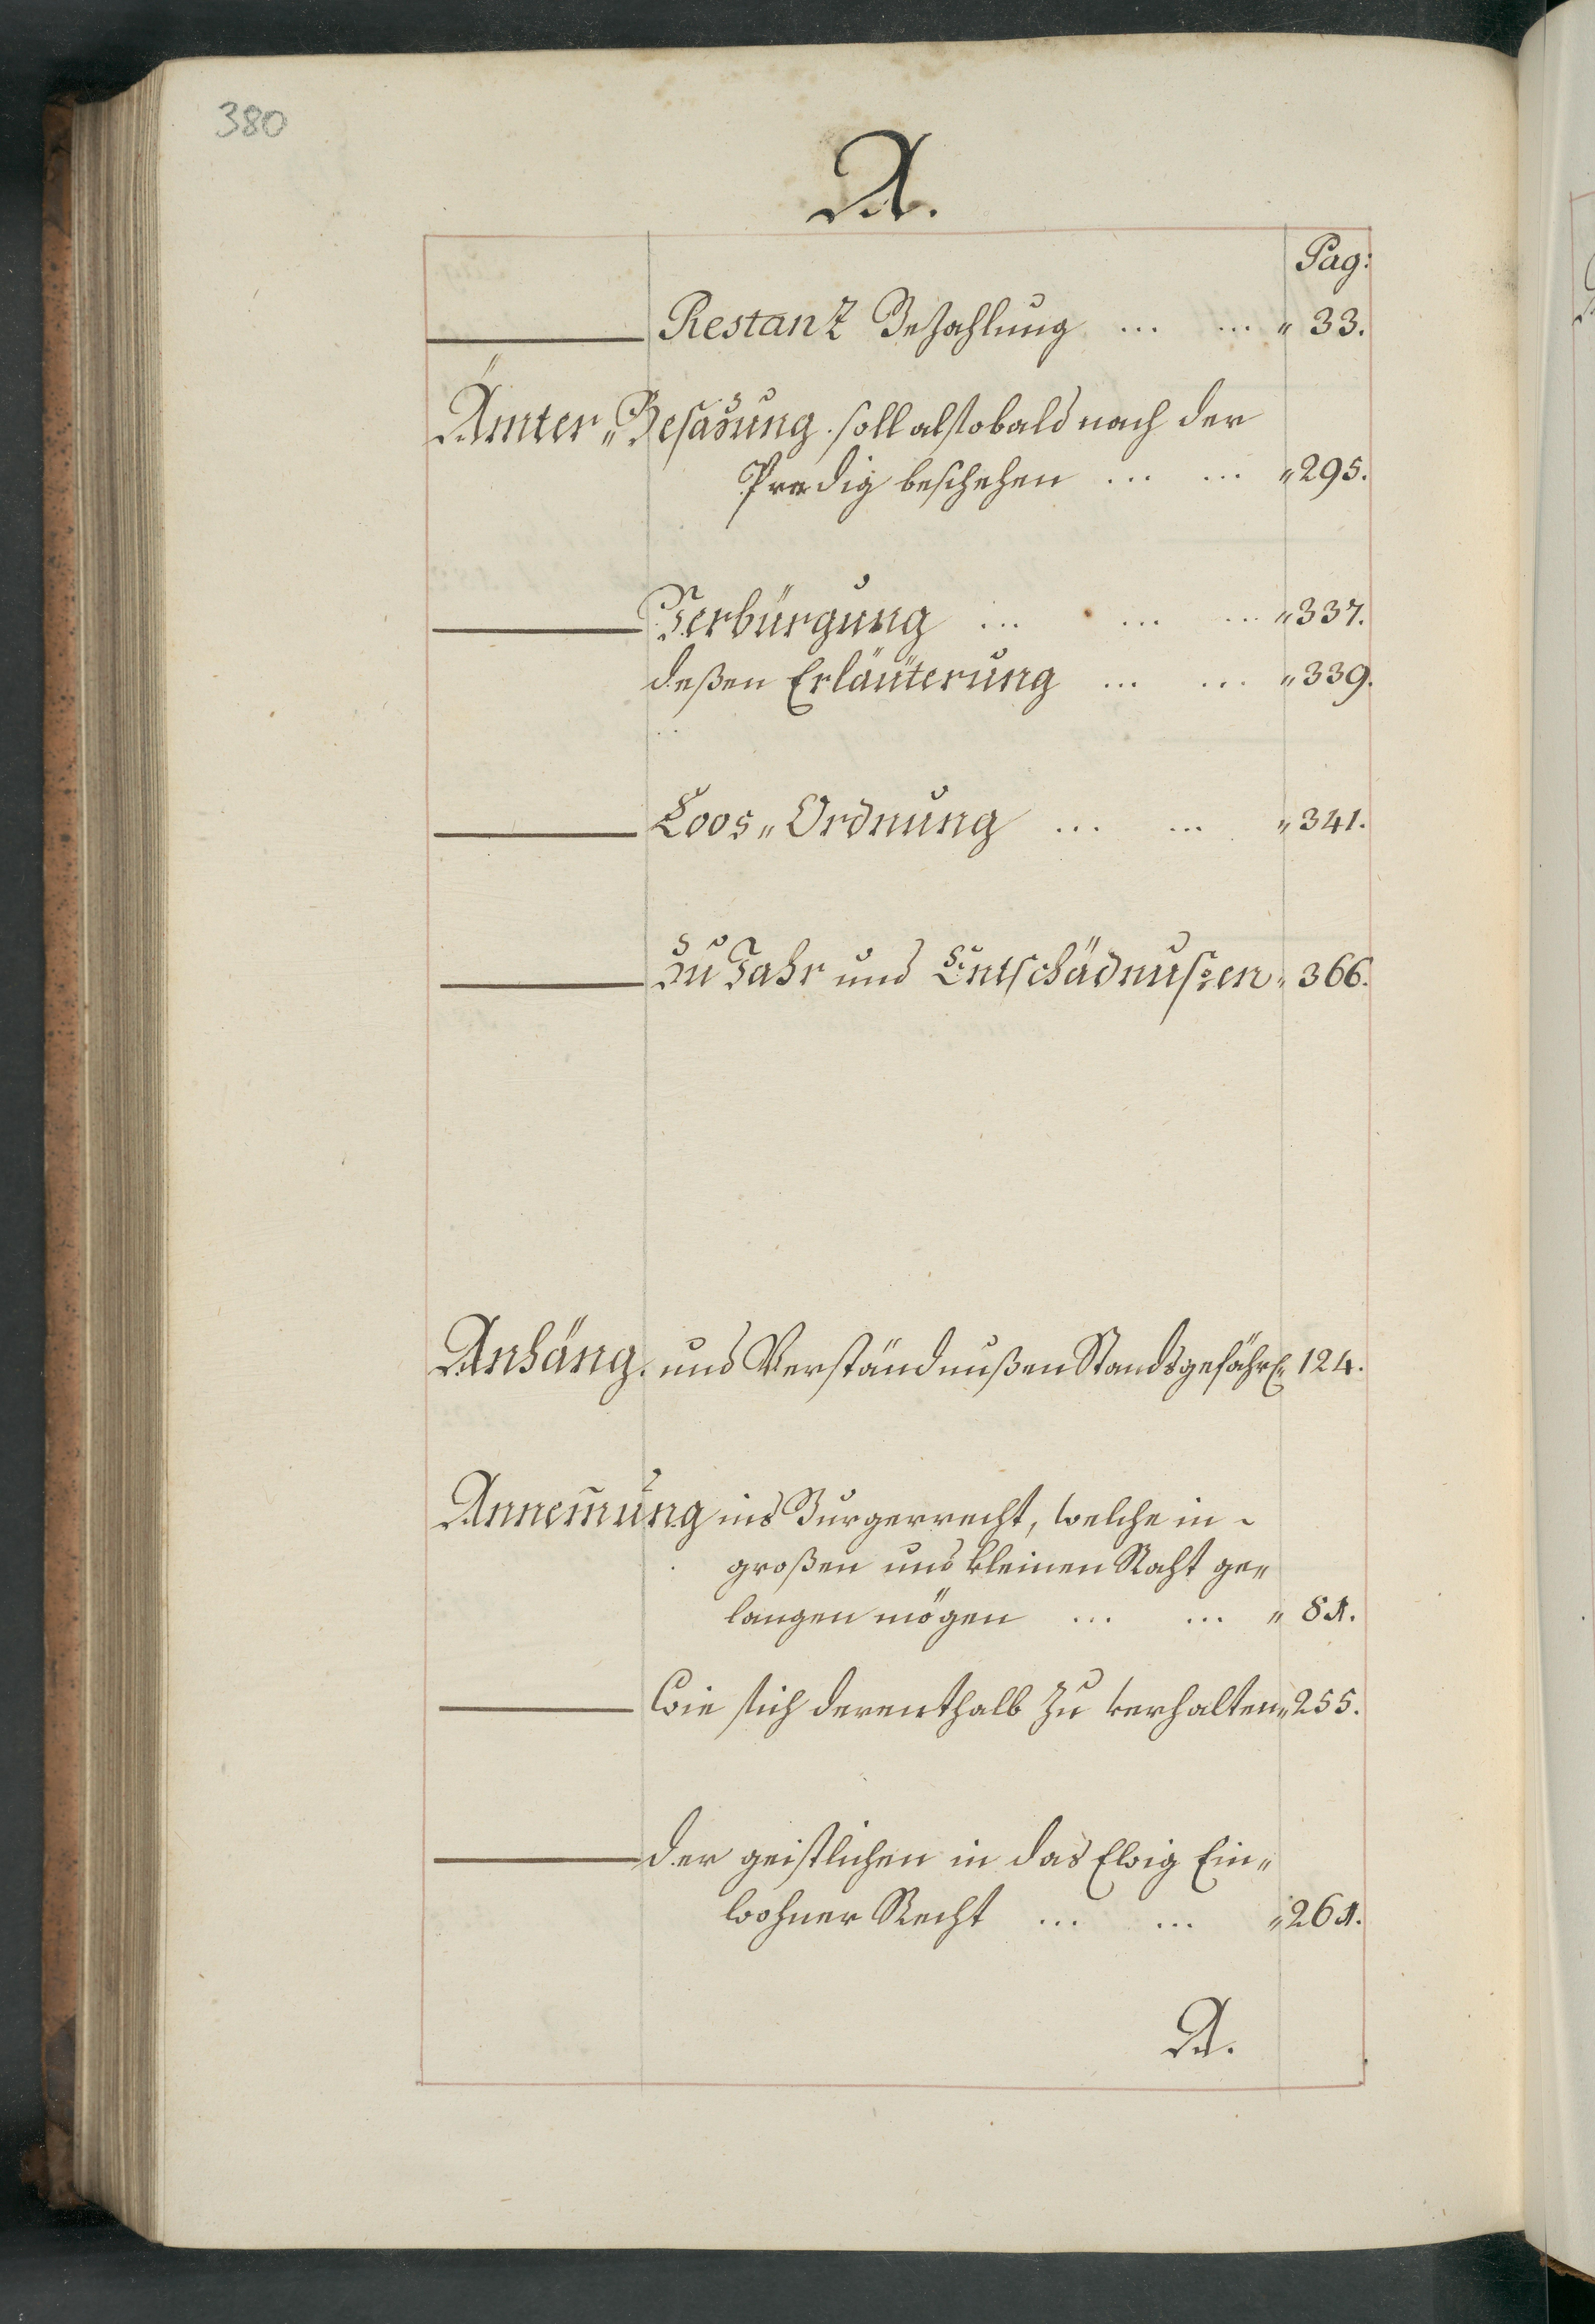 380
A.
Pag:
Restanz Bezahlung ... ... „ 33.
Ämter„Besazung soll alsobald nach der
Predig beschehen ... ... „ 295.
Verbürgung ... ... ... „ 337.
deßen Erläuterung ... ... „ 339.
Loos„Ordnung ... ... „ 341.
zu Fahr und Entschädnußen „ 366.
Anhäng. und Verständnußen Standsgefährl: 124.
Annem̄ung ins Burgerrecht, welche in
großen und kleinen Raht ge„
langen mögen ... ... „ 81.
Wie sich derenthalb zu verhalten „ 255.
der geistlichen in das Ewig Ein„
wohner Recht ... ... „ 261.
A.